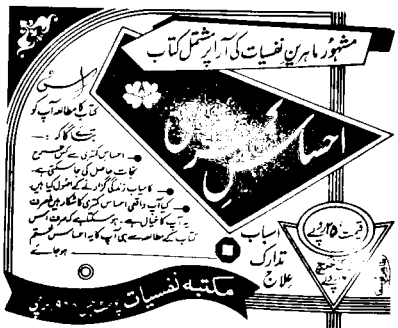 مشہور ماہرینِ نفسیات کی آرا پر مشتمل کتاب
احساسِ کمتری
اس
کتاب کا مطالعہ آپ کو
بتائے گا کہ :—
احساس کمتری سے کس طرح
نجات حاصل کی جا سکتی ہے۔
کامیاب زندگی گزارنے کے اصول کیا ہیں
کیا آپ واقعی احساس کمتری کا شکار ہیں یا صرف
یہ آپ کا خیال ہے۔ ہو سکتا ہے کہ صرف اس
کتاب کے مطالعہ سے ہی آپ کا یہ احساس ختم
ہو جائے
اسباب
تدارک
علاج
قیمت ۵ روپے
مکتبہ نفسیات پوسٹ بکس